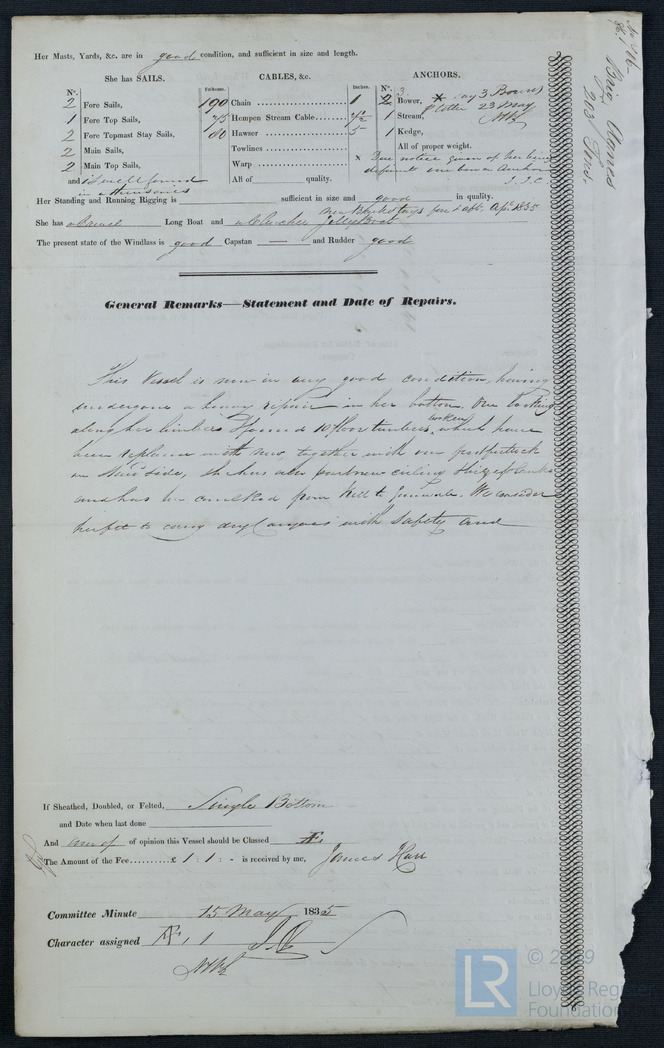 Her Masts, Yards, &c. are in good condition, and sufficient in size and length.
She has SAILS.
CABLES, &c.
ANCHORS.
Nº.
Fathoms.
Inches.
Nº.
2 Fore Sails,
1 Fore Top Sails,
2 Fore Topmast Stay Sails,
2 Main Sails,
2 Main Top Sails,
and is well found
190 Chain 1
75 Hempen Stream Cable 7½
80 Hawser 5
Towlines
Warp
All of quality.
3
2 Bower, * say 3 Bowers
1 Stream, Letter 23 May
1 Kedge,
All of proper weight.
x Due notice given of her being
deficient one bower Anchor
Her Standing and Running Rigging is sufficient in size and good in quality.
She has Long Boat and
The present state of the Windlass is good Capstan — and Rudder good
General Remarks—Statement and Date of Repairs.
This Vessel is now in very good condition, having
undergone a heavy repair in her bottom. On looking
along her timbers I found 10 floor timbers broken, which have
been replaced with new, together with one
side, she has also new ceiling
and has been caulked from Keel to Gunwale. We consider
her fit to carry dry Cargoes with Safety and
If Sheathed, Doubled, or Felted, Single Bottom
and Date when last done
And am of of opinion this Vessel should be Classed Æ1
The Amount of the Fee £ 1 : 1 : - is received by me, James Hall
Committee Minute 15 May 1835
Character assigned Æ 1
Brig Agnes
203 Tons.
© 2019
LR
Lloyd's Register
Foundation